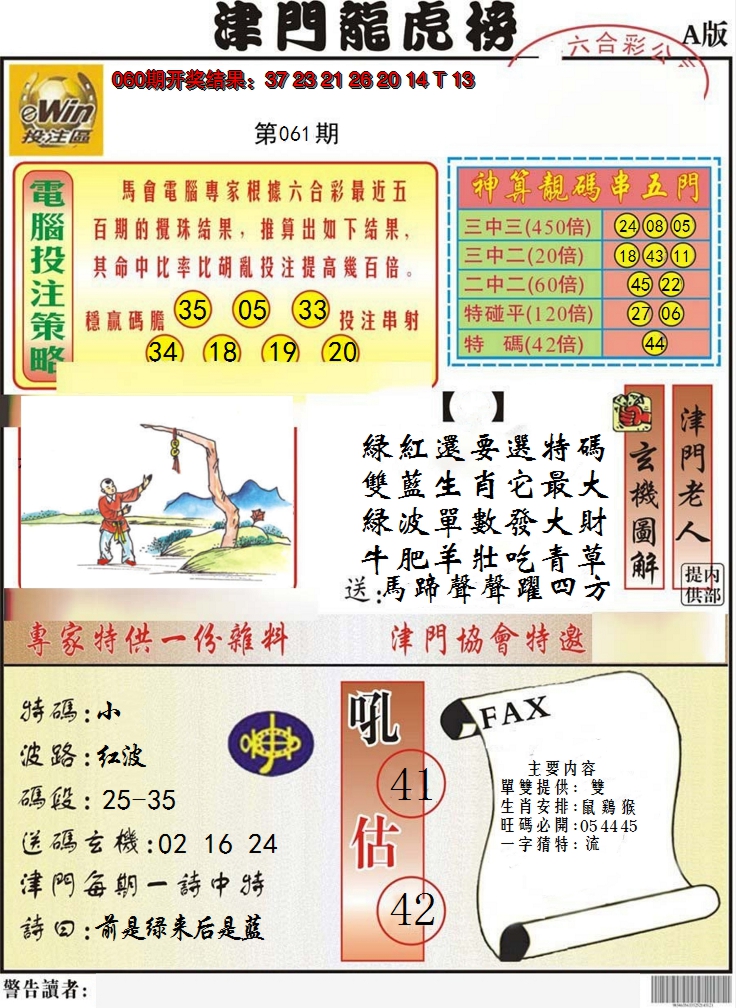 津門龍虎榜
A版
六合彩公司
060期开奖结果：37 23 21 26 20 14 T 13
eWin
投注區
第061期
電腦投注策略
馬會電腦專家根據六合彩最近五
百期的攪珠结果，推算出如下结果，
其命中比率比胡亂投注提高幾百倍。
穩贏碼膽 35 05 33 投注串射
34 18 19 20
神算靚碼串五門
三中三(450倍) 24 08 05
三中二(20倍) 18 43 11
二中二(60倍) 45 22
特碰平(120倍) 27 06
特 碼(42倍) 44
【 】
綠紅還要選特碼
雙藍生肖它最大
綠波單數發大財
牛肥羊壯吃青草
送：馬蹄聲聲躍四方
玄機圖解
津門老人
提供
内部
專家特供一份雜料
津門協會特邀
特碼:小
波路:红波
碼段:25-35
送碼玄機:02 16 24
津門每期一詩中特
詩曰:前是绿来后是藍
吼
41
估
42
FAX
主要内容
單雙提供：雙
生肖安排:鼠鷄猴
旺碼必開:05 44 45
一字猜特：流
警告讀者：